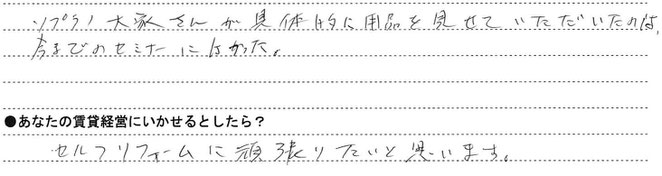 ソプラノ大家さんが具体的に用品を見せていただいたのは、
今までのセミナーになかった。
●あなたの賃貸経営にいかせるとしたら？
セルフリフォームに頑張りたいと思います。